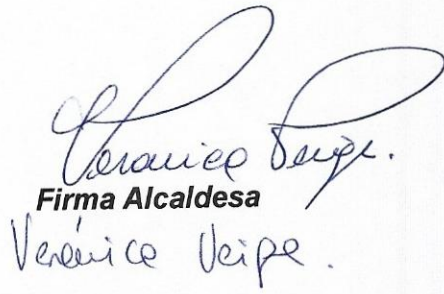 Veronica Veiga.
Firma Alcaldesa
Verónica Veiga.